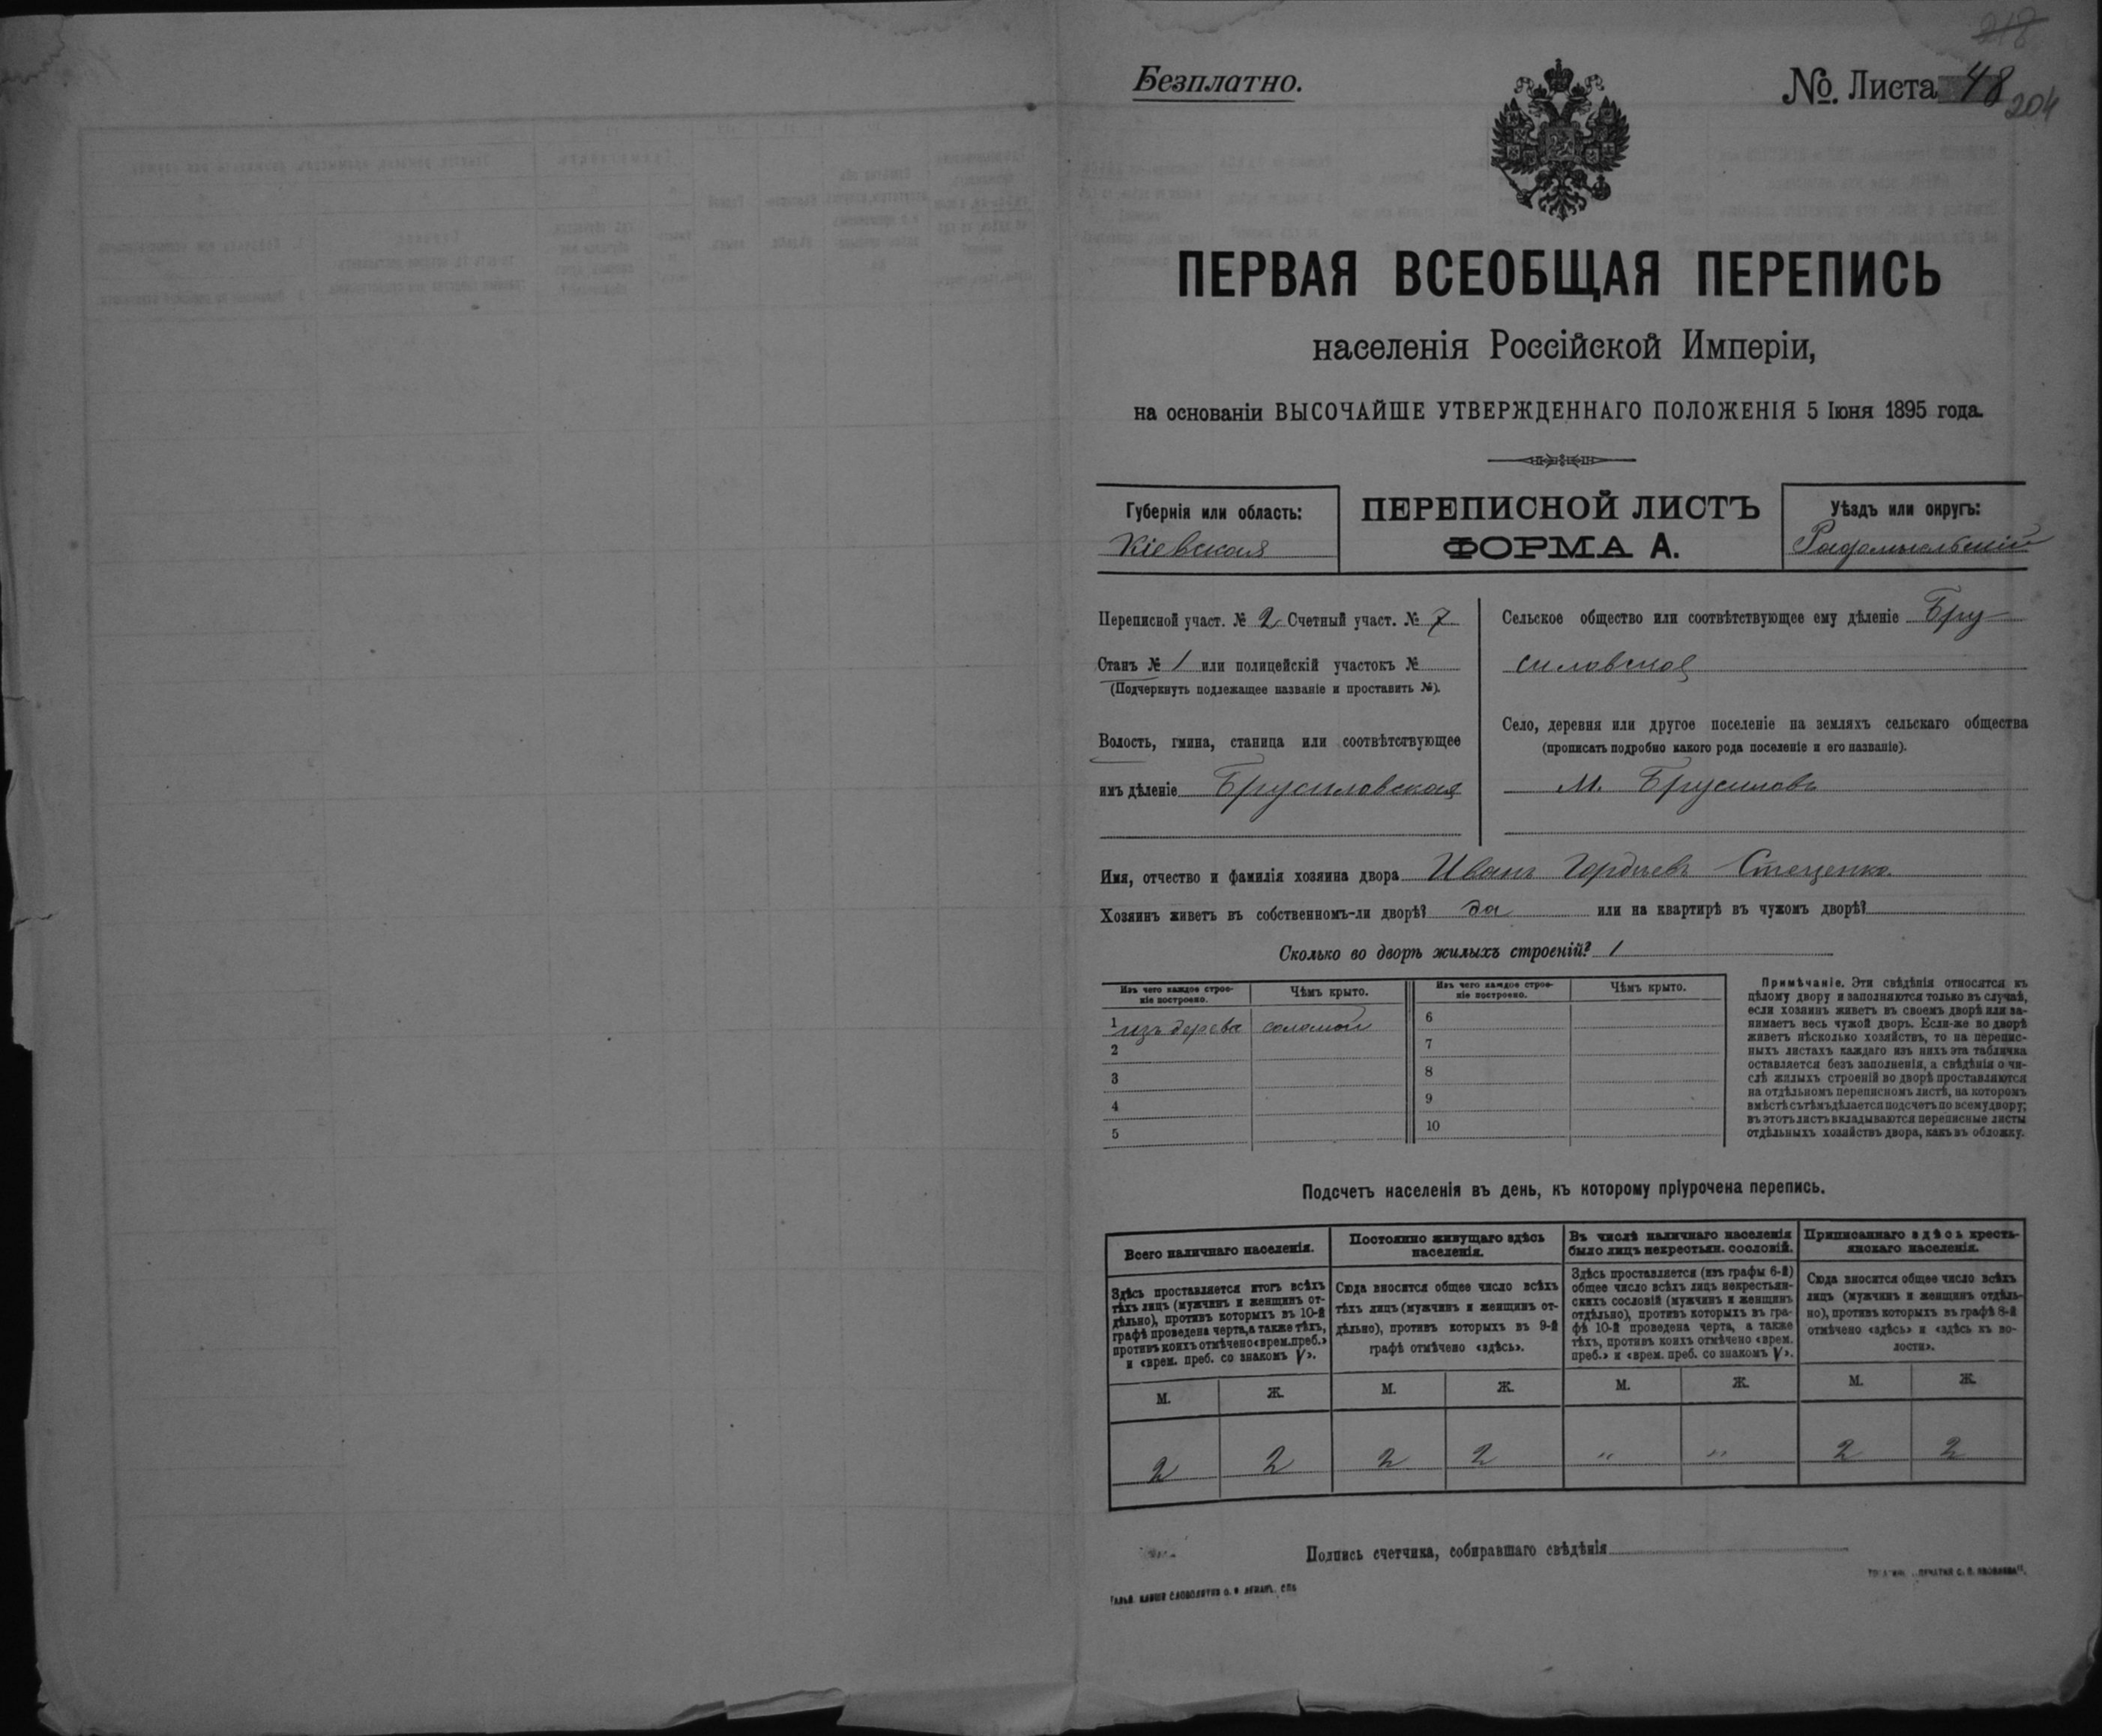 218
Безплатно.
№. Листа 48
204
ПЕРВАЯ ВСЕОБЩАЯ ПЕРЕПИСЬ
населенія Россійской Имперіи,
на основаніи ВЫСОЧАЙШЕ УТВЕРЖДЕННАГО ПОЛОЖЕНІЯ 5 Іюня 1895 года.
Губернія или область:
Кіевская
ПЕРЕПИСНОЙ ЛИСТЪ
ФОРМА А.
Уѣздъ или округъ:
Радомысльскій
Переписной участ. № 2 Счетный участ. № 7
Станъ № 1 или полицейскій участокъ №
(Подчеркнуть подлежащее названіе и проставить №).
Волость, гмина, станица или соотвѣтствующее
имъ дѣленіе Брусиловская
Сельское общество или соотвѣтствующее ему дѣленіе Бру-
силовское
Село, деревня или другое поселеніе на земляхъ сельскаго общества
(прописать подробно какого рода поселеніе и его названіе).
М. Брусиловъ
Имя, отчество и фамилія хозяина двора Иванъ Гордѣевъ Стеценко.
Хозяинъ живетъ въ собственномъ-ли дворѣ? да или на квартирѣ въ чужомъ дворѣ?
Сколько во дворѣ жилыхъ строеній? 1
Изъ чего каждое строе-
ніе построено.
Чѣмъ крыто.
Изъ чего каждое строе-
ніе построено.
Чѣмъ крыто.
1 изъ дерева соломой
2
3
4
5
6
7
8
9
10
Примѣчаніе. Эти свѣдѣнія относятся къ
цѣлому двору и заполняются только въ случаѣ,
если хозяинъ живетъ въ своемъ дворѣ или за-
нимаетъ весь чужой дворъ. Если-же во дворѣ
живетъ нѣсколько хозяйствъ, то на перепис-
ныхъ листахъ каждаго изъ нихъ эта табличка
оставляется безъ заполненія, а свѣдѣнія о чи-
слѣ жилыхъ строеній во дворѣ проставляются
на отдѣльномъ переписномъ листѣ, на которомъ
вмѣстѣ съ тѣмъ дѣлается подсчетъ по всему двору;
въ этотъ листъ вкладываются переписные листы
отдѣльныхъ хозяйствъ двора, какъ въ обложку.
Подсчетъ населенія въ день, къ которому пріурочена перепись.
Всего наличнаго населенія.
Здѣсь проставляется итогъ всѣхъ
тѣхъ лицъ (мужчинъ и женщинъ от-
дѣльно), противъ которыхъ въ 10-й
графѣ проведена черта, а также тѣхъ,
противъ коихъ отмѣчено «врем. преб.»
и «врем. преб. со знакомъ V».
Постоянно живущаго здѣсь
населенія.
Сюда вносится общее число всѣхъ
тѣхъ лицъ (мужчинъ и женщинъ от-
дѣльно), противъ которыхъ въ 9-й
графѣ отмѣчено «здѣсь».
Въ числѣ наличнаго населенія
было лицъ некрестьян. сословій.
Здѣсь проставляется (изъ графы 6-й)
общее число всѣхъ лицъ некрестьян-
скихъ сословій (мужчинъ и женщинъ
отдѣльно), противъ которыхъ въ гра-
фѣ 10-й проведена черта, а также
тѣхъ, противъ коихъ отмѣчено «врем.
преб.» и «врем. преб. со знакомъ V».
Приписаннаго здѣсь кресть-
янскаго населенія.
Сюда вносится общее число всѣхъ
лицъ (мужчинъ и женщинъ отдѣль-
но), противъ которыхъ въ графѣ 8-й
отмѣчено «здѣсь» и «здѣсь къ во-
лости».
М. Ж. М. Ж. М. Ж. М. Ж.
2 2 2 2 " " 2 2
Подпись счетчика, собиравшаго свѣдѣнія